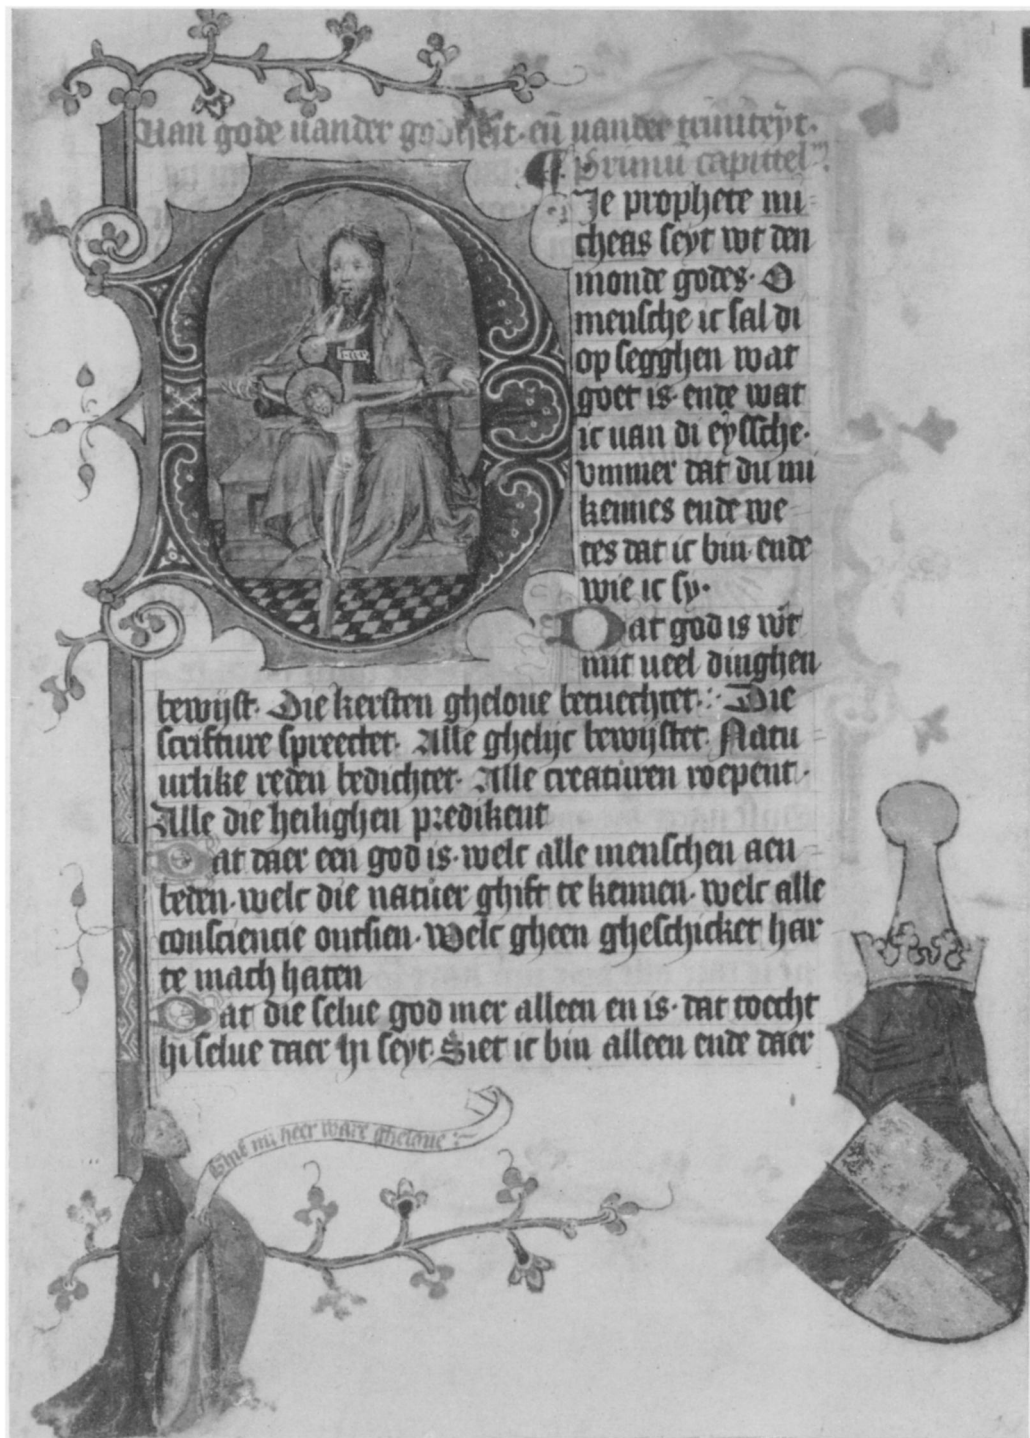 Uan gode uander godheit · eñ uander triniteyt ·
Primu capittel
Je prophete mi
cheas seyt wt den
monde godes · O
mensche ic sal di
op segghen wat
goet is · ende wat
ic uan di eyssche ·
ummer dat du mi
kennes ende we
tes dat ic bin · ende
wie ic sy ·
Dat god is wt
mit ueel dinghen
bewijst · Die kersten gheloue betuechtet · Die
scrifture spreectet · Alle ghelijc bewijstet · Natu
urlike reden bedichtet · Alle creaturen roepent ·
Alle die heilighen predikent
Dat daer een god is · welc alle menschen aen
beden · welc die natuer ghift te kennen · welc alle
consciencie ontsien · Welc gheen gheschicket har
te mach haten
Dat die selue god mer alleen en is · dat toecht
hi selue daer hi seyt · Siet ic bin alleen ende daer
Ghif mi heer ware gheloue